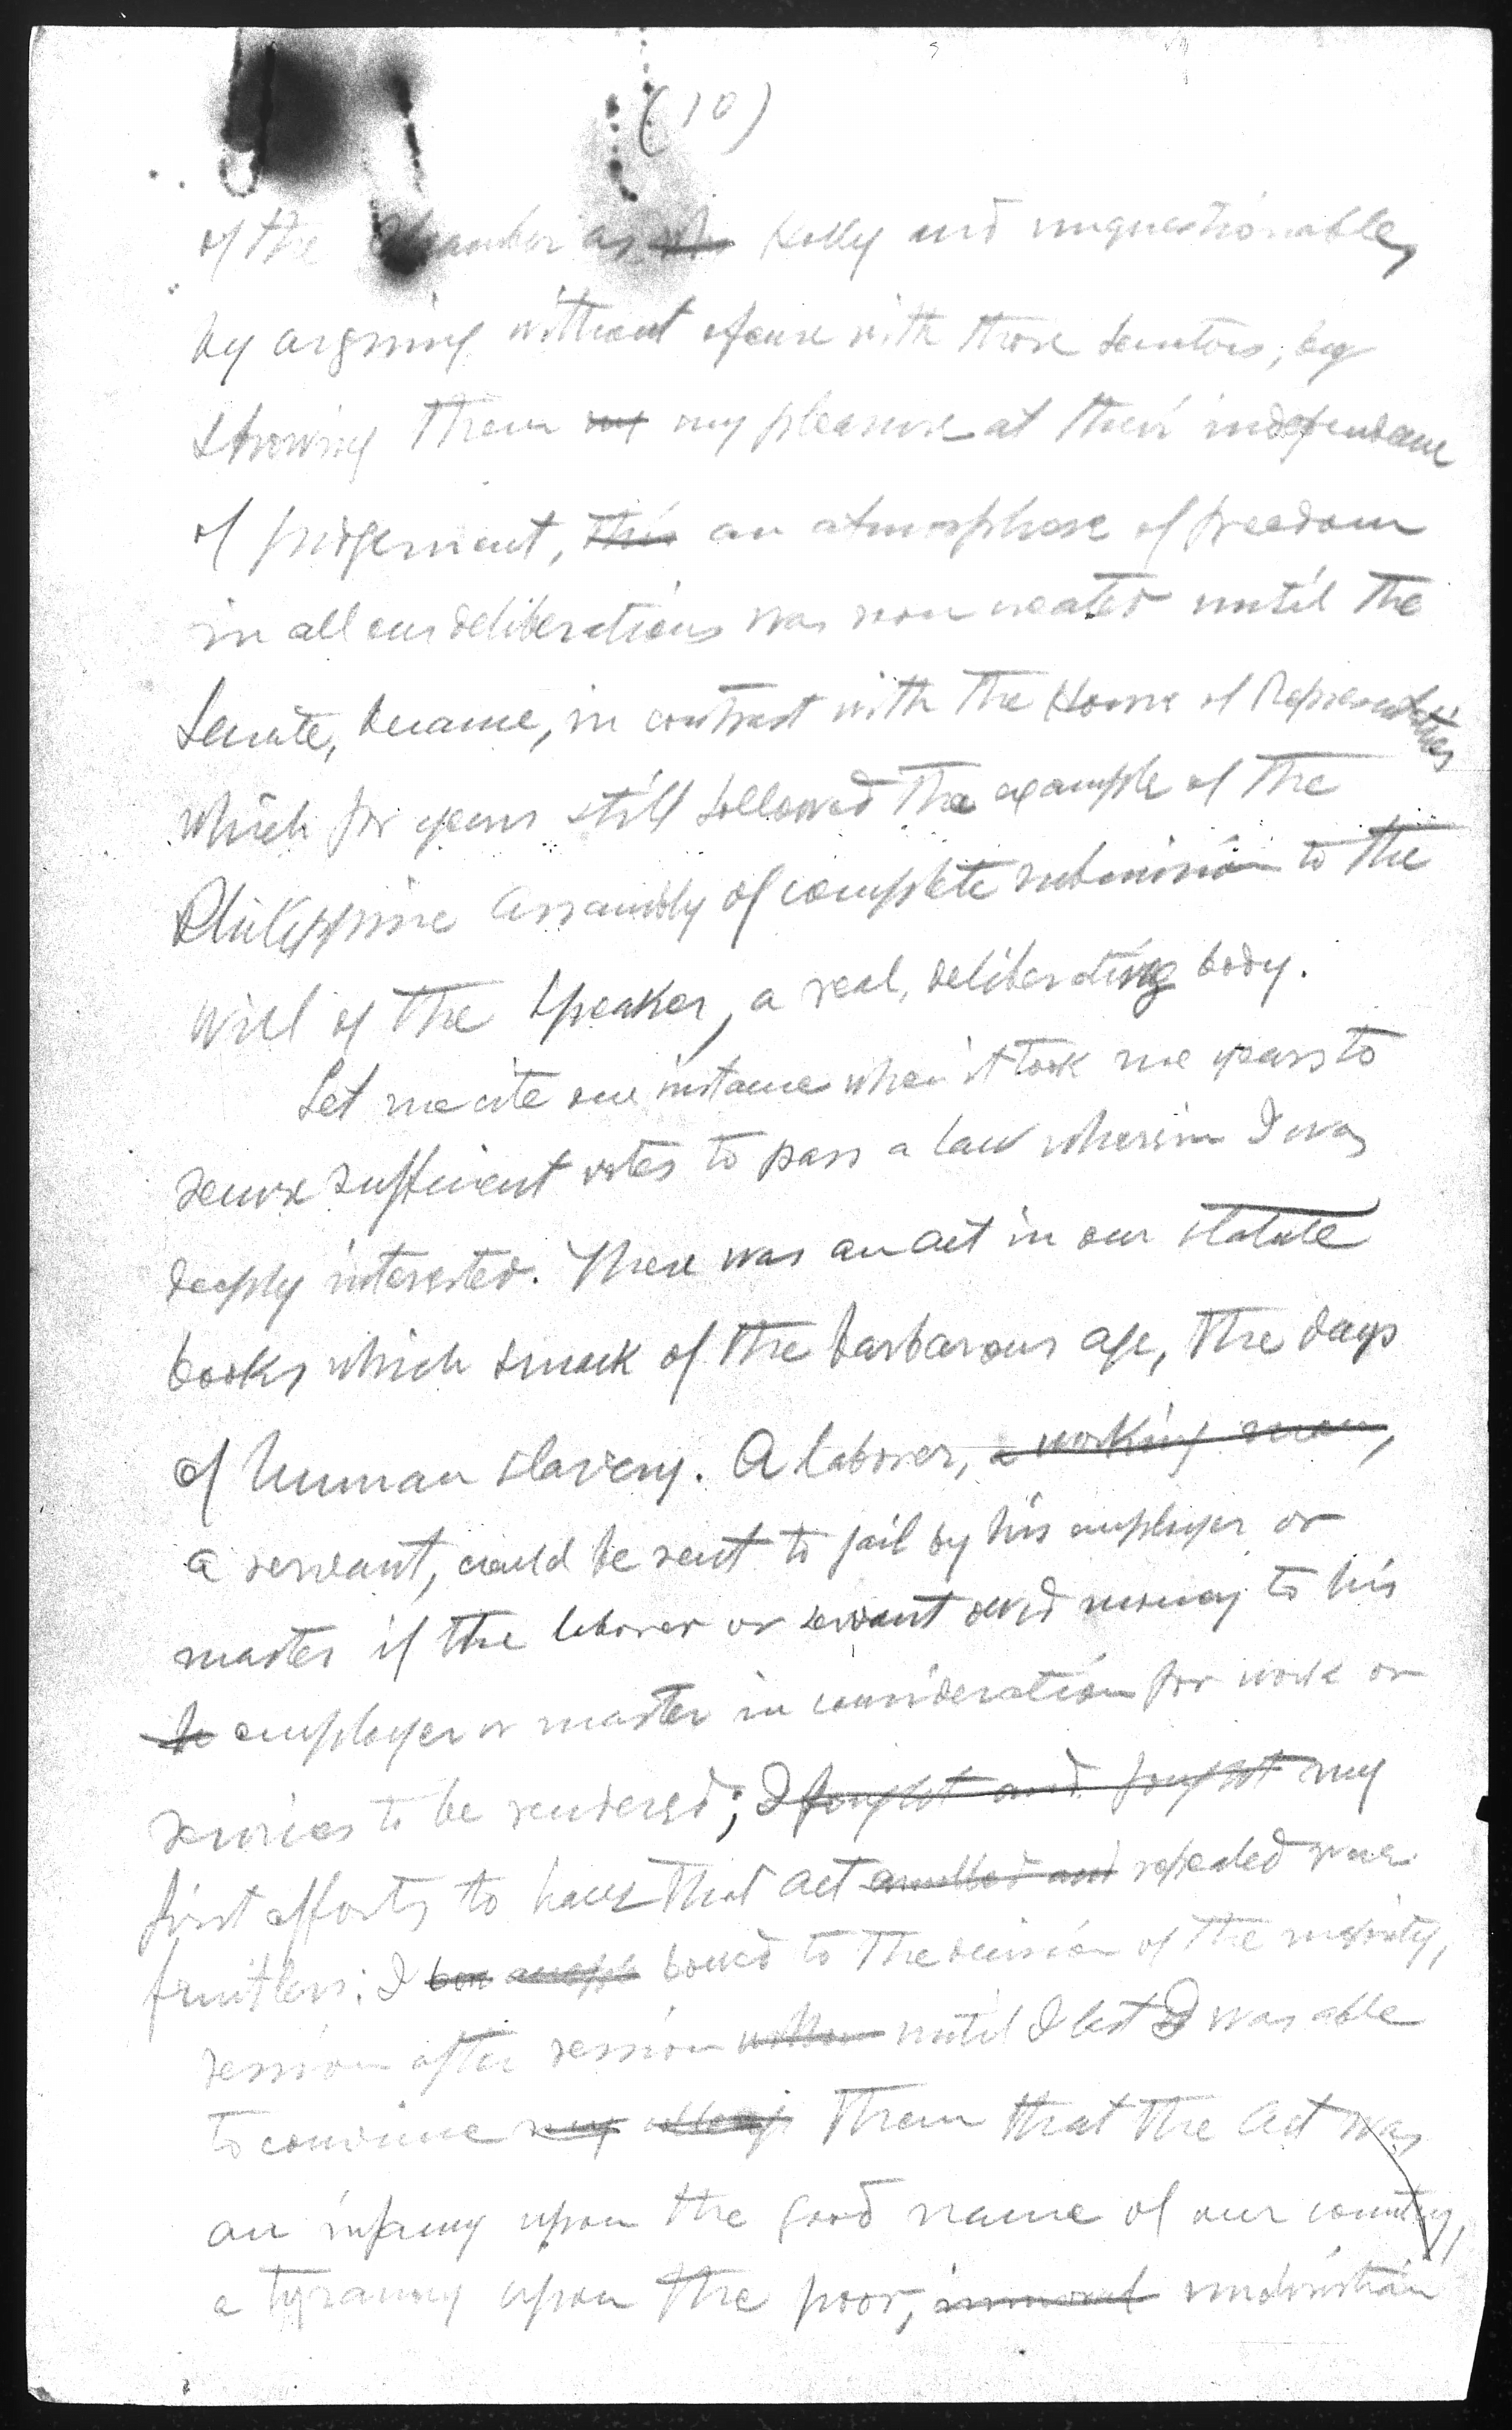 (10)
of the Chamber as fully and unquestionable,
by arguing without ofense with those Senators, by
showing them my my pleasure at their independance
of judgement, this an atmosphere of freedom
in all our deliberations was soon created until the
Senate, became, in contrast with the House of Representatives
which for years still followed the example of the
Philippine Assambly of complete submission to the
will of the Speaker, a real, deliberating body.
Let me cite one instance when it took me years to
secure sufficient votes to pass a law wherein I was
deeply interested. There was an act in our statute
books which smack of the barbarous age, the days
of human slavery. A laborer, a working man,
a servant, could be sent to jail by his employer or
master if the laborer or servant owed money to his
he employer or master in consideration for work or
services to be rendered; I fought and fought my
first efforts to have that act annulled and repealed were
fruitless; I bow accept bowed to the decision of the majority,
session after session until I last I was able
to convince my them that the act was
an infamy upon the good name of our country,
a tyranny upon the poor, immoral unchristian